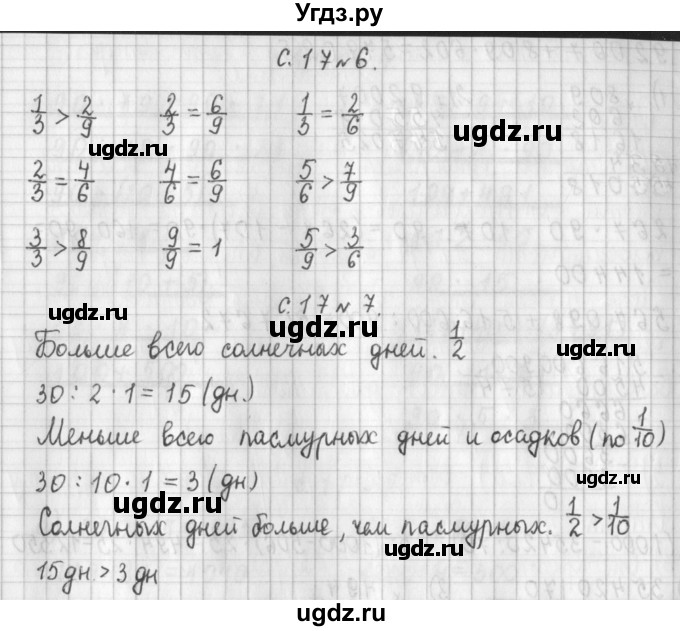 Угдз.ру
С. 17 № 6.
1/3 > 2/9 2/3 = 6/9 1/3 = 2/6
ugdz.ru
ugdz.ru
2/3 = 4/6 4/6 = 6/9 5/6 > 7/9
ugdz.ru
3/3 > 8/9 9/9 = 1 5/9 > 3/6
С. 17 № 7.
ugdz.ru
ugdz.ru
Больше всего солнечных дней. 1/2
ugdz.ru
30 : 2 · 1 = 15 (дн.)
Меньше всего пасмурных дней и осадков (по 1/10)
30 : 10 · 1 = 3 (дн)
ugdz.ru
ugdz.ru
Солнечных дней больше, чем пасмурных. 1/2 > 1/10
15 дн. > 3 дн
ugdz.ru
ugdz.ru
ugdz.ru